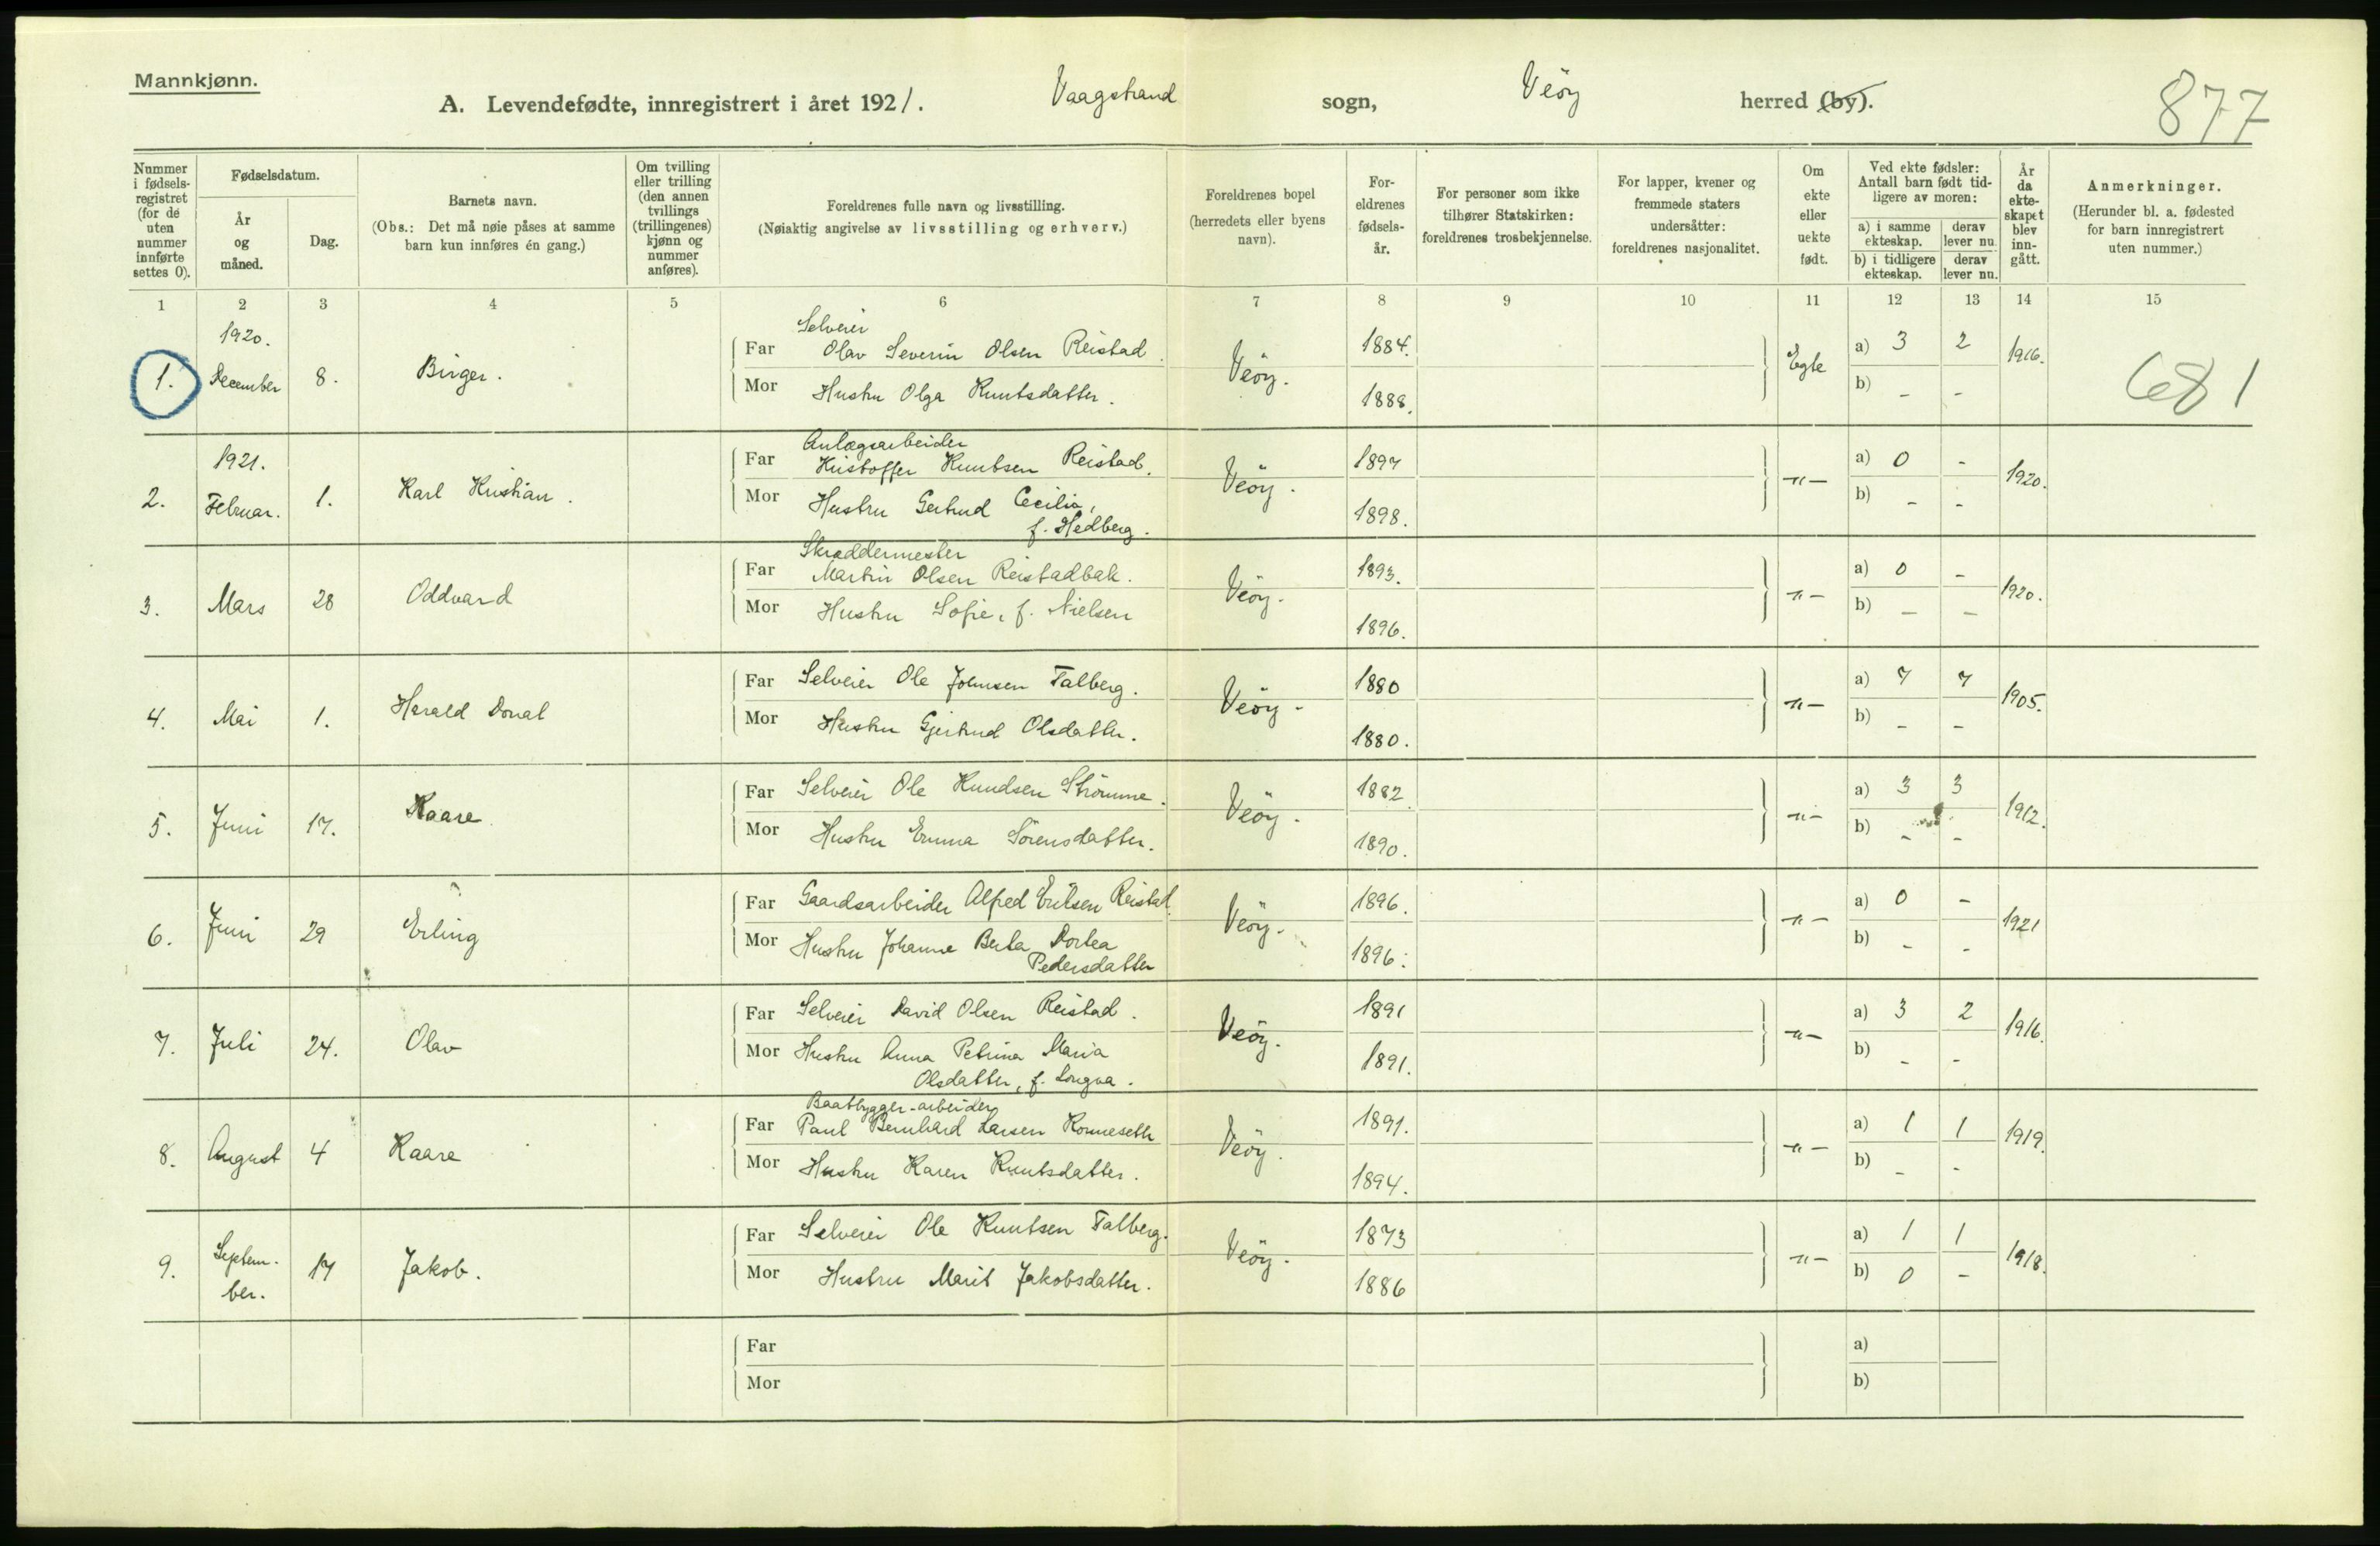 Mannkjønn.
A. Levendefødte, innregistrert i året 1921. Vaagstrand sogn, Veöy herred (by).
877
Nummer i fødsels-registret (for de uten nummer innførte settes 0).
Fødselsdatum.
År og måned.
Dag.
Barnets navn.
(Obs.: Det må nøie påses at samme barn kun innføres én gang.)
Om tvilling eller trilling (den annen tvillings (trillingenes) kjønn og nummer anføres).
Foreldrenes fulle navn og livsstilling.
(Nøiaktig angivelse av livsstilling og erhverv.)
Foreldrenes bopel (herredets eller byens navn).
For-eldrenes fødsels-år.
For personer som ikke tilhører Statskirken: foreldrenes trosbekjennelse.
For lapper, kvener og fremmede staters undersåtter: foreldrenes nasjonalitet.
Om ekte eller uekte født.
Ved ekte fødsler: Antall barn født tid-ligere av moren:
a) i samme ekteskap. derav lever nu.
b) i tidligere ekteskap. derav lever nu.
År da ekte-skapet blev inn-gått.
Anmerkninger.
(Herunder bl. a. fødested for barn innregistrert uten nummer.)
1 2 3 4 5 6 7 8 9 10 11 12 13 14 15
1920.
Selveier
1. December 8. Birger. Far Olav Severin Olsen Reistad. Veöy. 1884. Egte a) 3 2 1916.
Mor Hustru Olga Knutsdatter. 1888. b) - -
681
1921.
Anlægsarbeider
2. Februar. 1. Karl Kristian. Far Kristoffer Knutsen Reistad. Veöy. 1897 -"- a) 0 - 1920.
Mor Hustru Gertrud Cecilia, 1898. b) - -
f. Hedberg.
Skræddermester
3. Mars 28 Oddvard Far Martin Olsen Reistadbak. Veöy. 1893. -"- a) 0 - 1920.
Mor Hustru Sofie, f. Nielsen 1896. b) - -
4. Mai 1. Harald Donat Far Selveier Ole Johnsen Talberg. Veöy - 1880 -"- a) 7 7 1905.
Mor Hustru Gjertrud Olsdatter. 1880. b) - -
5. Juni 17. Kaare Far Selveier Ole Knudsen Strömme. Veöy. 1882. -"- a) 3 3 1912.
Mor Hustru Emma Sörensdatter. 1890. b) - -
6. Juni 29 Erling Far Gaardsarbeider Alfred Eriksen Reistad. Veöy. 1896. -"- a) 0 - 1921
Mor Hustru Johanne Berta Dortea 1896. b) - -
Pedersdatter
7. Juli 24. Olav Far Selveier David Olsen Reistad. Veöy. 1891 -"- a) 3 2 1916.
Mor Hustru Anna Petrina Maria 1891. b) - -
Olsdatter, f. Longva.
Baatbygger-arbeider
8. August 4 Kaare Far Paul Bernhard Larsen Konneseth Veöy. 1891. -"- a) 1 1 1919.
Mor Hustru Karen Knutsdatter. 1894. b) - -
9. Septem-ber. 17 Jakob. Far Selveier Ole Knutsen Talberg. Veöy. 1873 -"- a) 1 1 1918.
Mor Hustru Marit Jakobsdatter. 1886 b) 0 -
Far a)
Mor b)